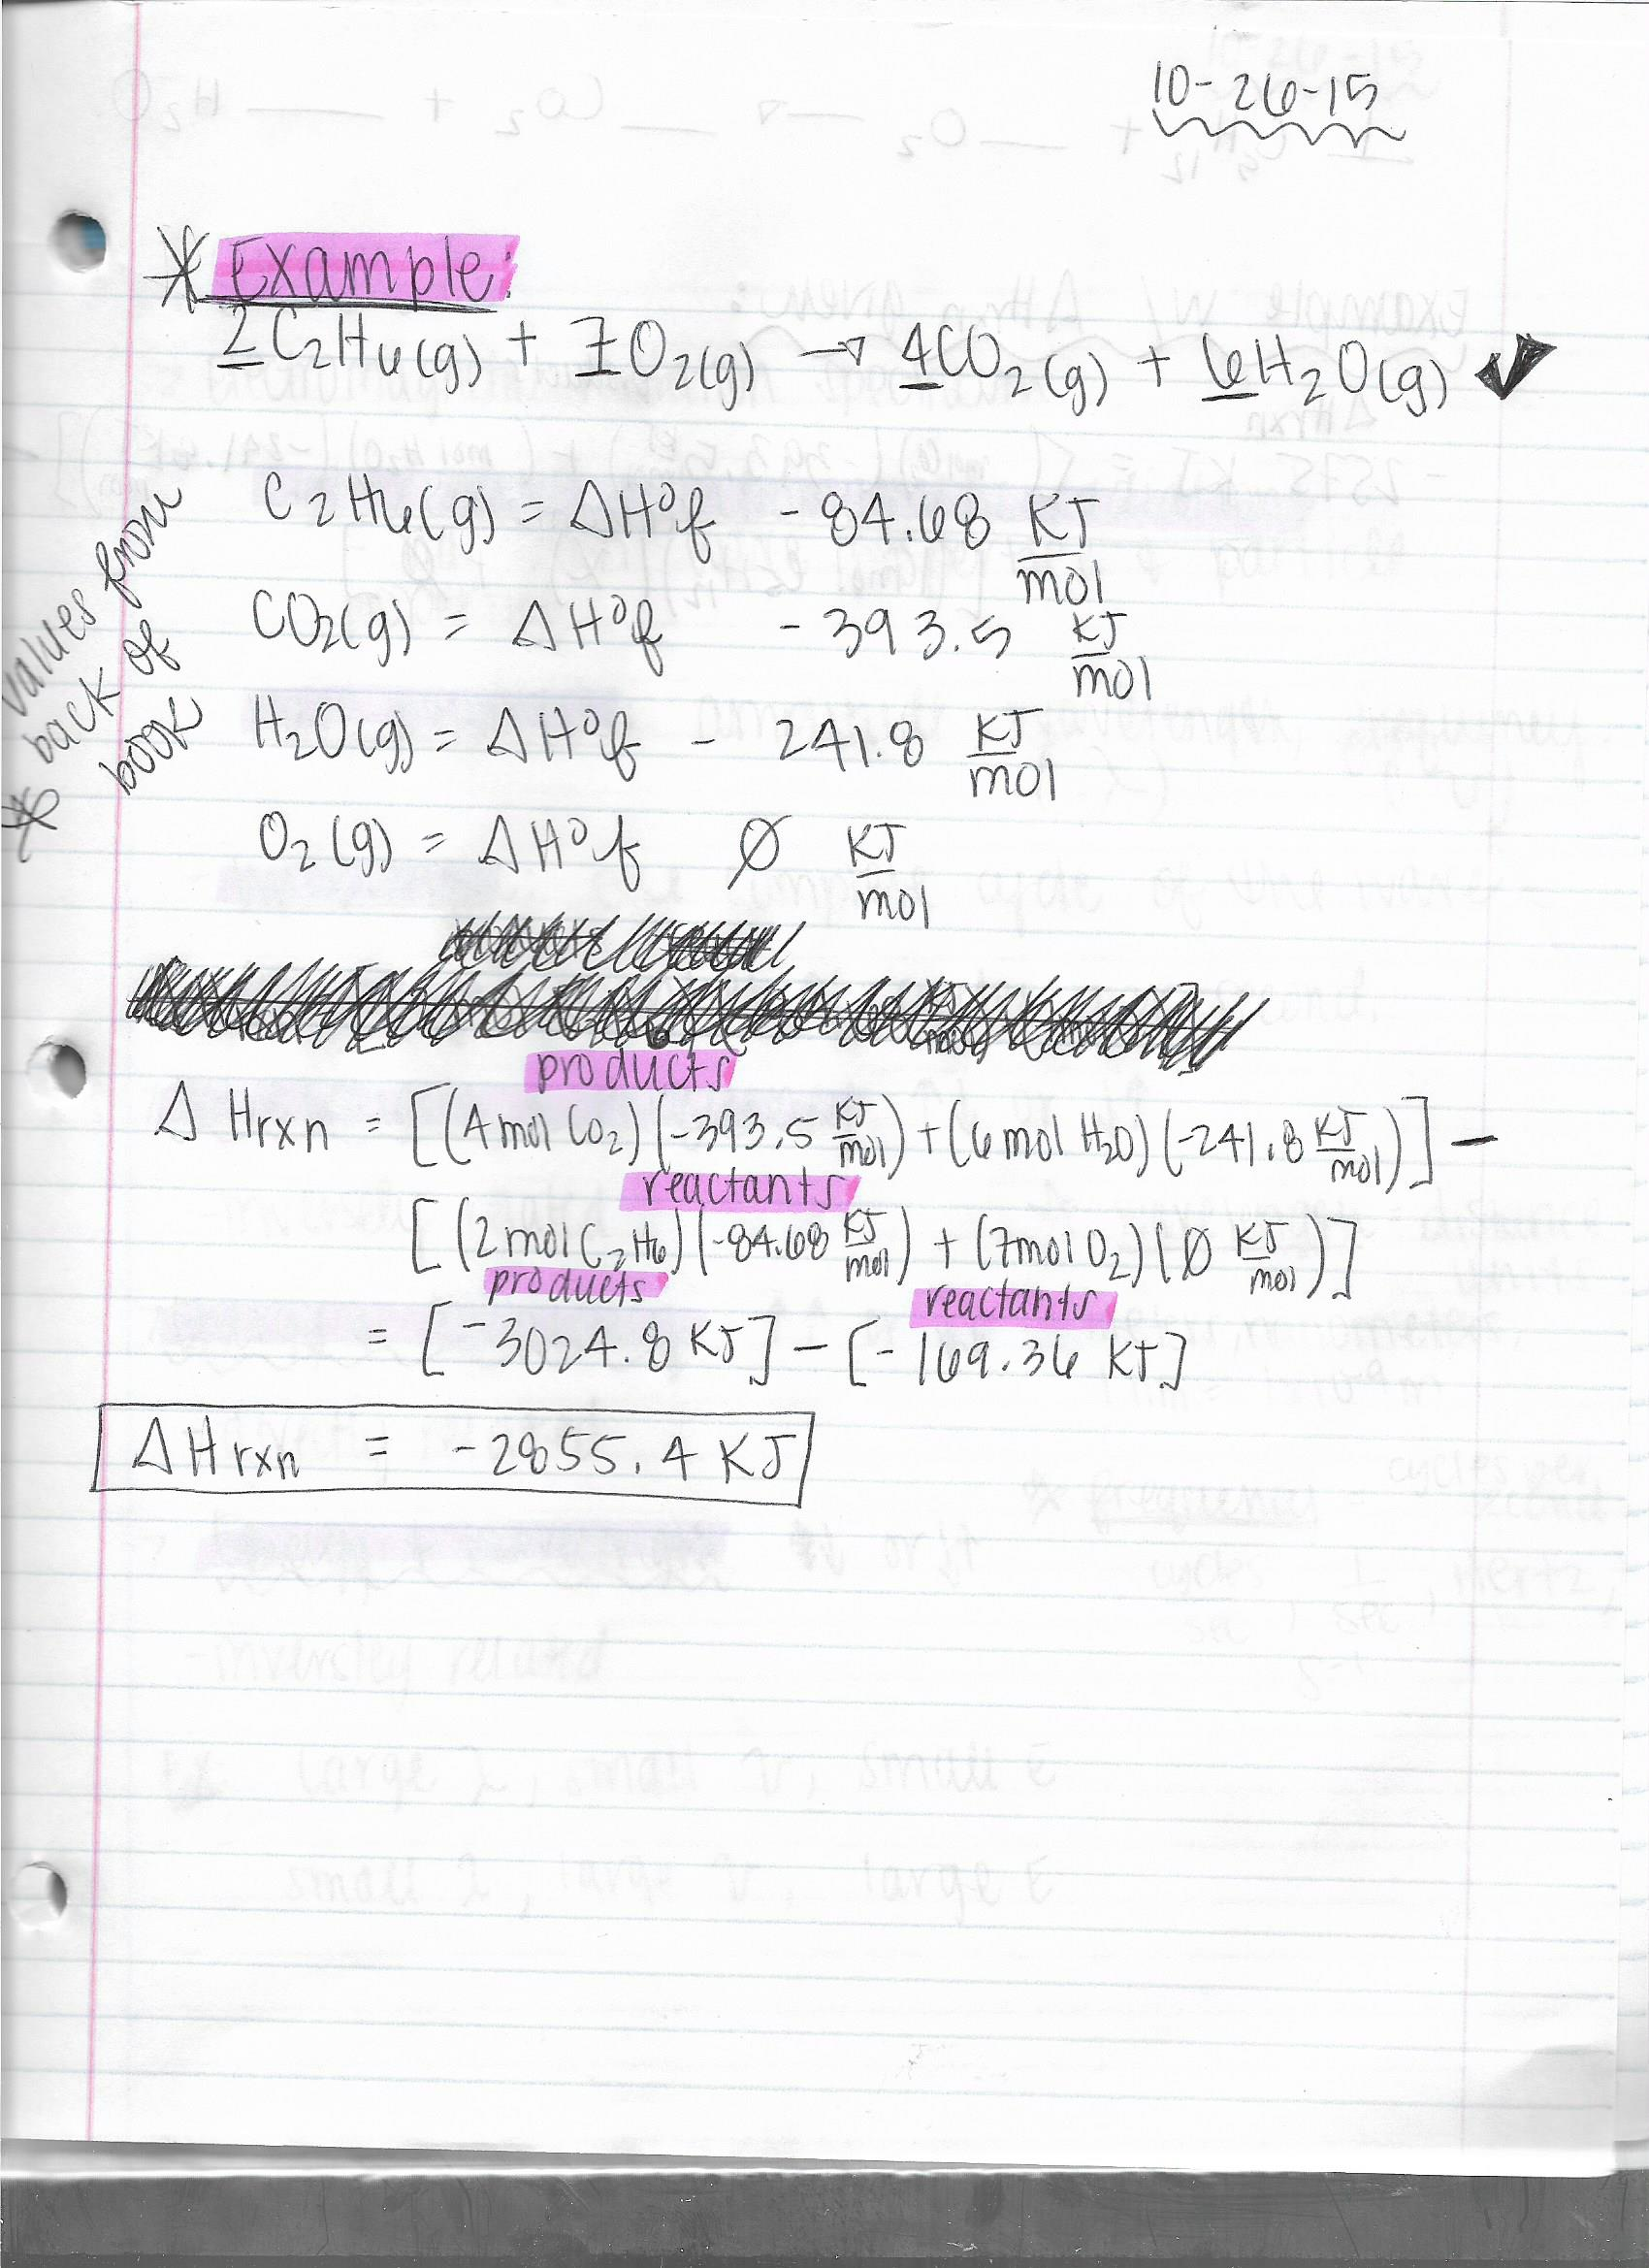 10-26-15
* Example:
2C₂H₆(g) + 7O₂(g) → 4CO₂(g) + 6H₂O(g) ✔
* values from
back of
book
C₂H₆(g) = ΔH°f -84.68 KJ/mol
CO₂(g) = ΔH°f -393.5 KJ/mol
H₂O(g) = ΔH°f - 241.8 KJ/mol
O₂(g) = ΔH°f Ø KJ/mol
products
ΔHrxn = [(4mol CO₂)(-393.5 KJ/mol) + (6 mol H₂O)(-241.8 KJ/mol)] -
reactants
[(2mol C₂H₆)(-84.68 KJ/mol) + (7mol O₂)(Ø KJ/mol)]
products reactants
= [-3024.8 KJ] - [-169.36 KJ]
ΔHrxn = -2855.4 KJ